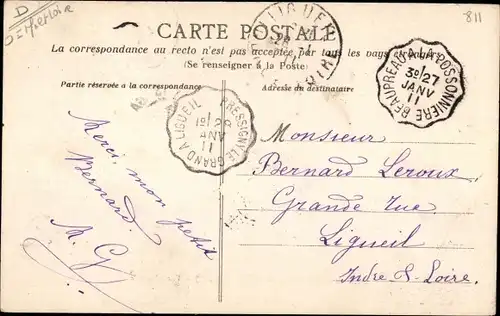 D
811
CARTE POSTALE
La correspondance au recto n'est pas acceptée par tous les pays étrangers
(Se renseigner à la Poste)
Partie réservée à la correspondance
Adresse du destinataire
LIGUEIL
BEAUPREAU A LA POSSONNIERE
1
3º 27
JANV
11
PRESSIGNY LE GRAND A LIGUEIL
1
1º 28
JANV
11
Merci, mon petit
Bernard.
M. G
Monsieur
Bernard Leroux
Grande rue
Ligueil
Indre & Loire.